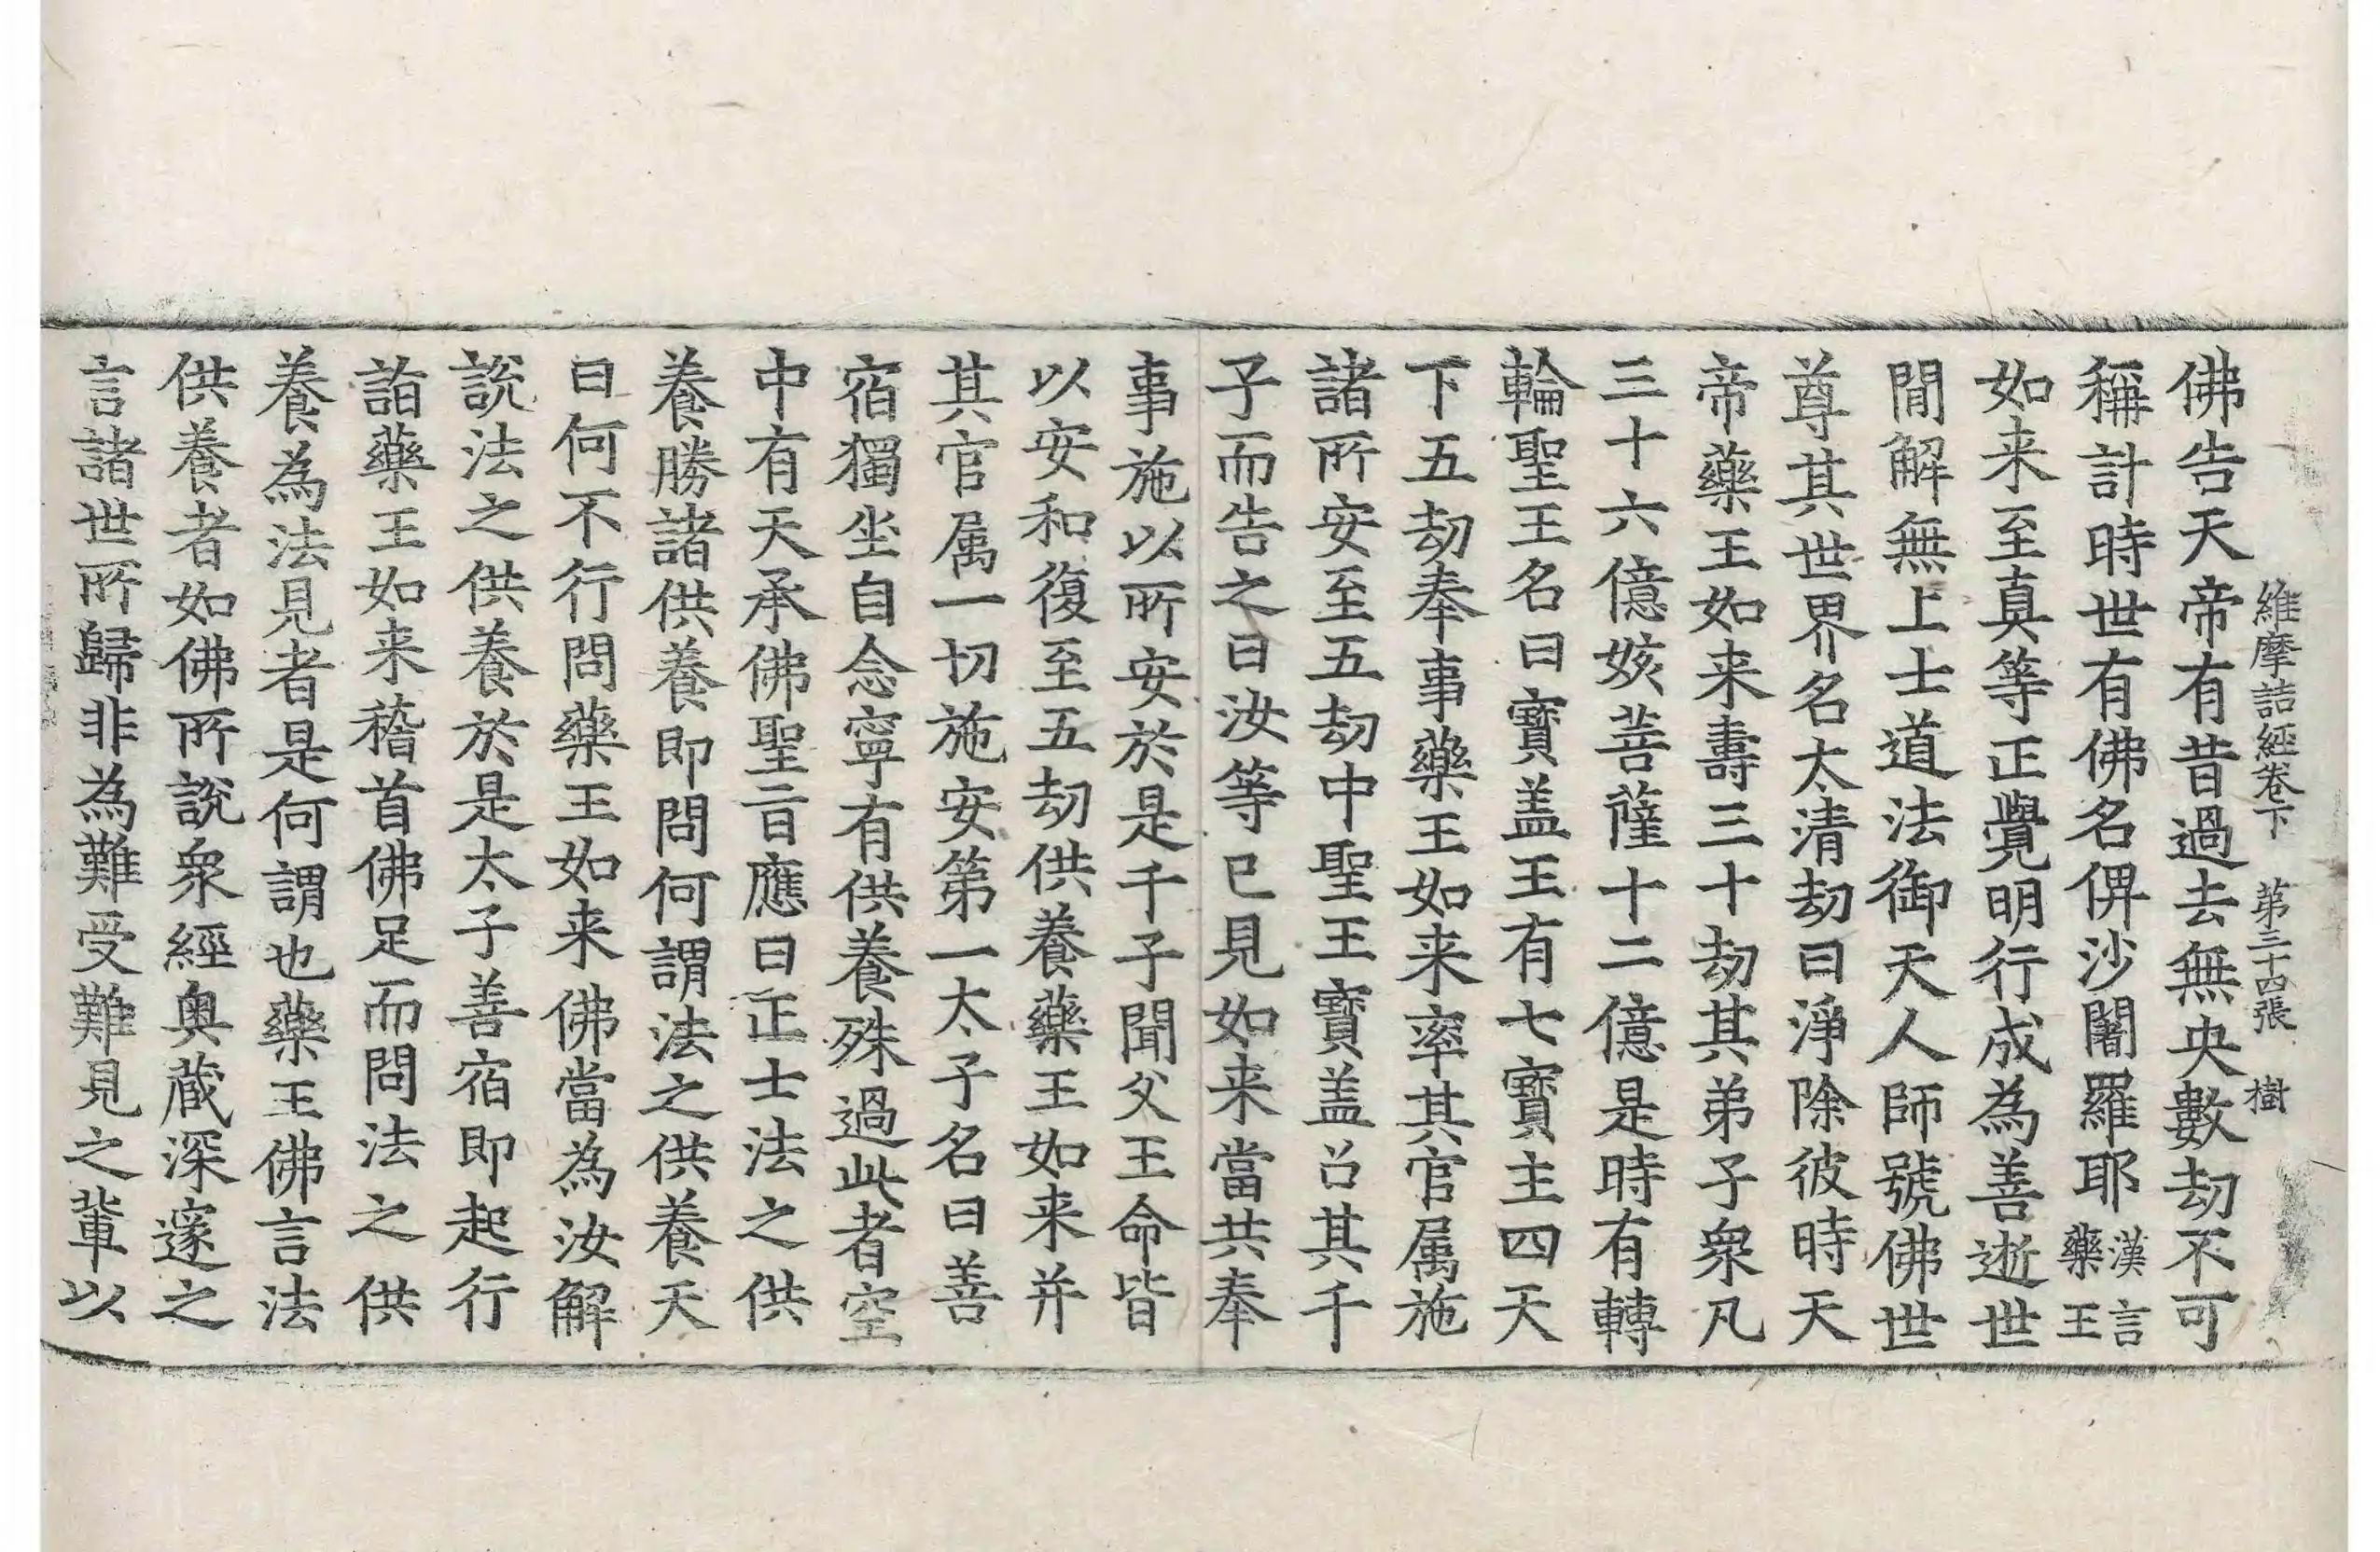 維摩詰經卷下 第三十四張 樹
佛告天帝有昔過去無央數劫不可
稱計時世有佛名俾沙闍羅耶漢言藥王
如来至真等正覺明行成為善逝世
間解無上士道法御天人師號佛世
尊其世界名太清劫曰淨除彼時天
帝藥王如来壽三十劫其弟子衆凡
三十六億姟菩薩十二億是時有轉
輪聖王名曰寶盖王有七寶主四天
下五劫奉事藥王如来率其官属施
諸所安至五劫中聖王寶盖召其千
子而告之曰汝等已見如来當共奉
事施以所安於是千子聞父王命皆
以安和復至五劫供養藥王如来并
其官属一切施安第一太子名曰善
宿獨坐自念寧有供養殊過此者空
中有天承佛聖旨應曰正士法之供
養勝諸供養即問何謂法之供養天
曰何不行問藥王如来佛當為汝解
說法之供養於是太子善宿即起行
詣藥王如来稽首佛足而問法之供
養為法見者是何謂也藥王佛言法
供養者如佛所說衆經奥蔵深邃之
言諸世所歸非為難受難見之輩以